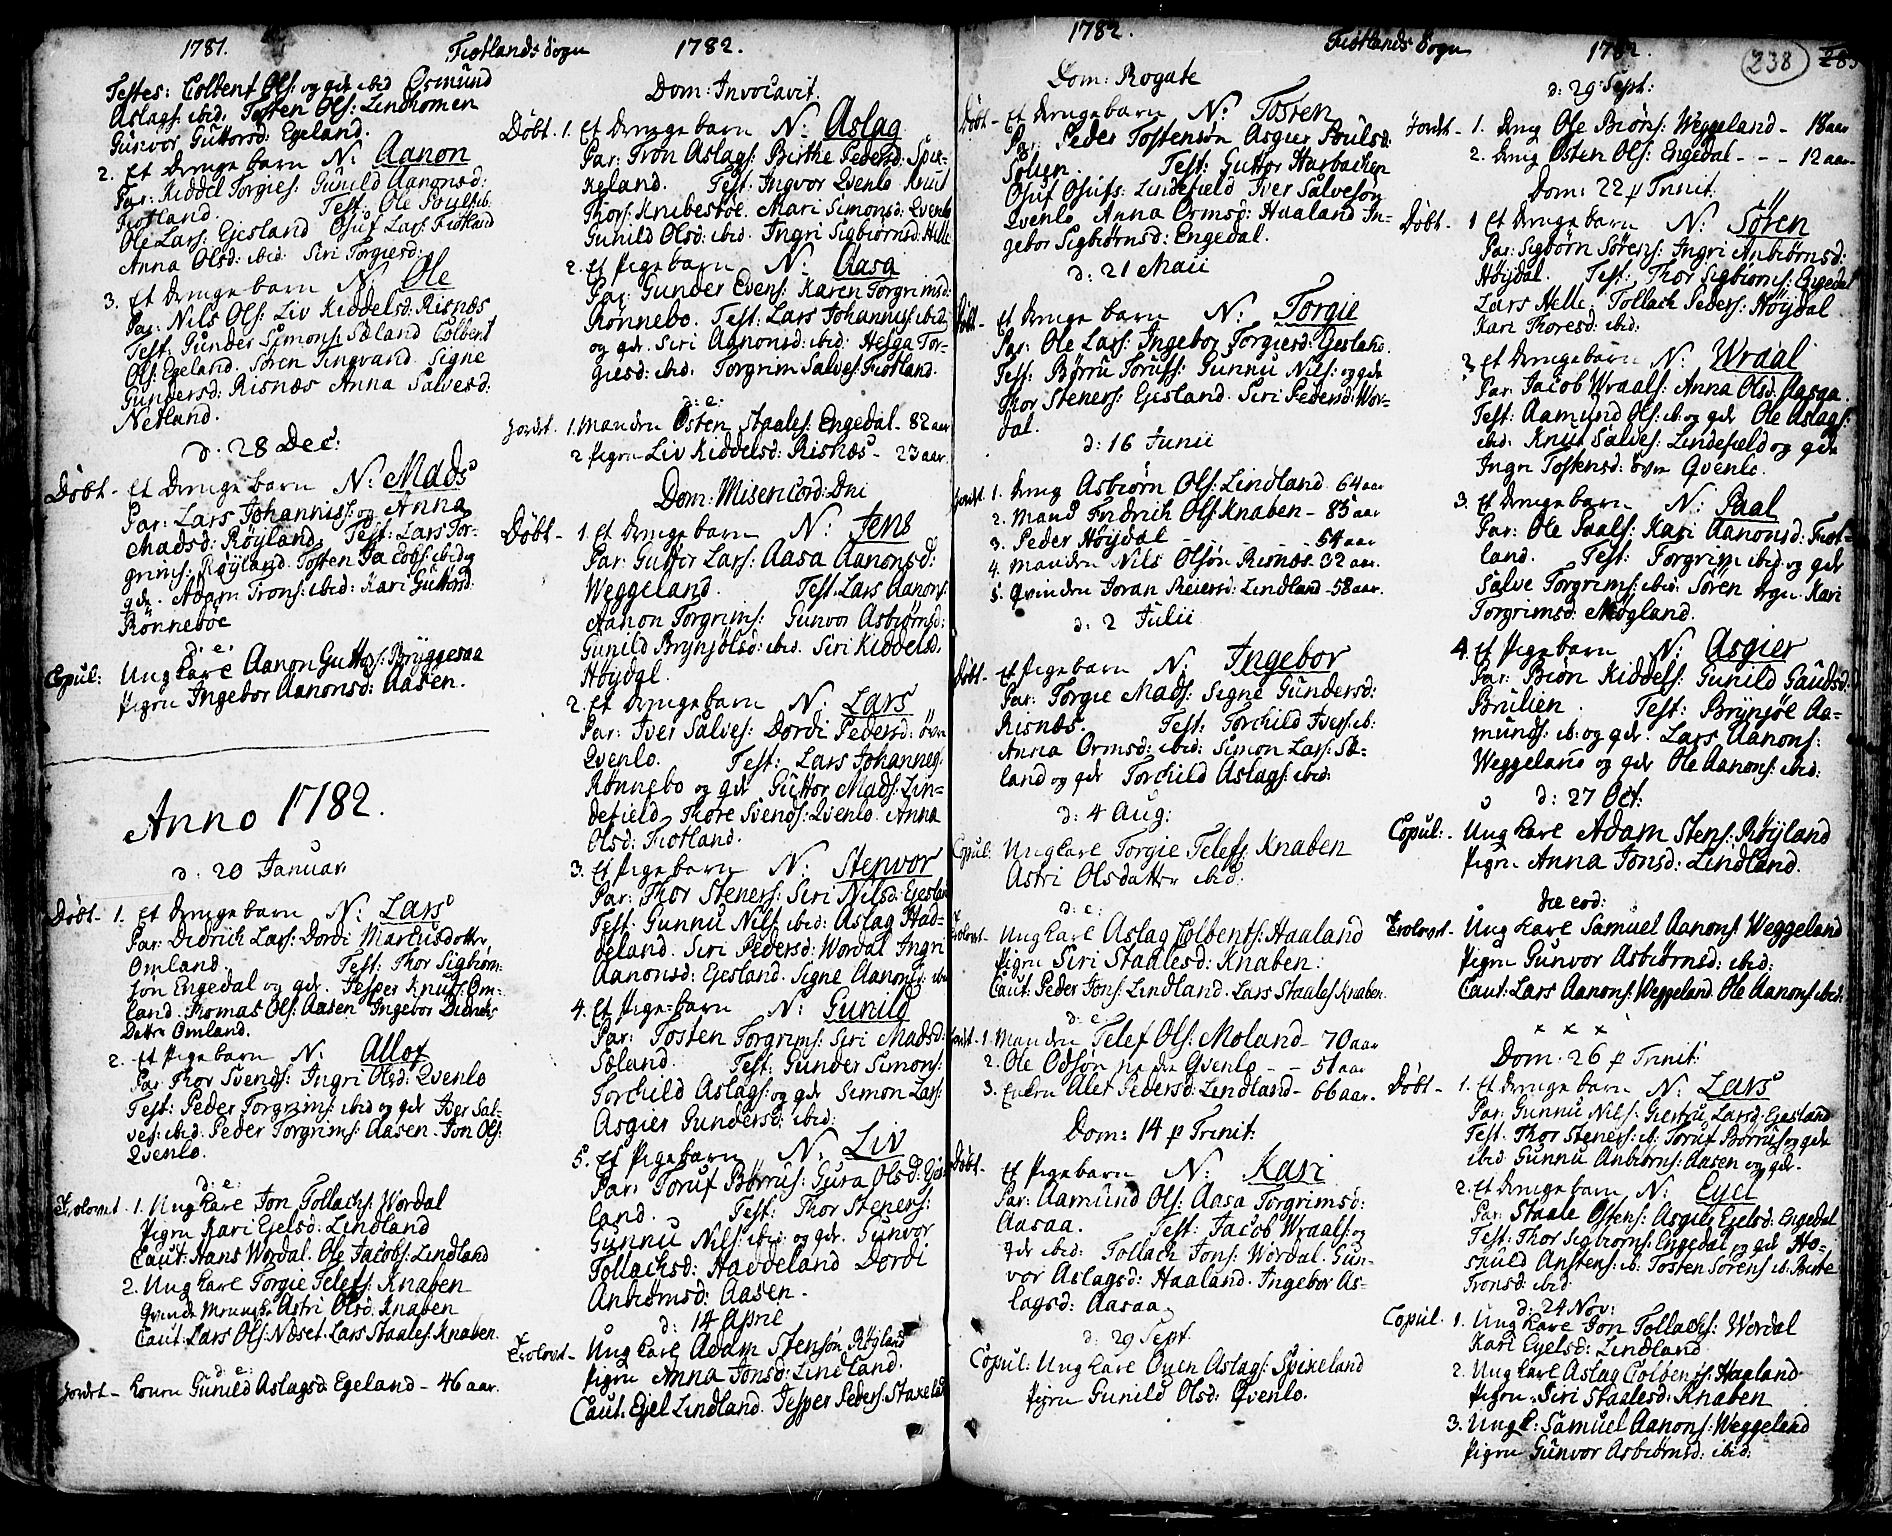 1781. Fiotlands Sogn 1782.
Testes: Colbent Ols: og gdr ibid Osmund
Aslags: ibid. Tosten Ols: Lindhomen
Gunvor Guttorsd: Egeland.
2. Et drengebarn N: Aanon
Par: Kiddel Torgies: Gunild Aanonsd:
Fiotland. Test: Ole
Ole Lars: Ejesland Osuf Lars: Fiotland
Anna Olsd: ibid: Siri Torgiesd:
3. Et drengebarn N: Ole
Par: Nils Ols: Liv Kiddelsd: Risnæs
Test: Gunder Simons: Sæland Colbent
Ols: Egeland. Søren Tingvand. Signe
Gundersd: Risnæs Anna Salvesd:
Netland.
d: 28 Dec:
Døbt - Et drengebarn N: Mads
Par: Lars Johannis: og Anna
Madsd: Røyland. Test: Lars Tor-
grims: Røyland. Tosten Jacobs: ibid og
gdr. Adam Trons: ibid: Kari Guttorsd:
Rønneboe
d: e:
Copul: Ungkarl Aanon Guttors: Bryggesaa
Pigen Ingebor Aanonsd: Aasen.
Anno 1782.
d: 20 Januar
Døbt - 1. Et drengebarn N: Lars
Par: Didrich Lars: Dordi Marcusdotter
Omland. Test: Thor Sigbiorn-
son Engedal og gdr. Jesper Knuds: Om-
land. Thomas Ols: Aasen Ingebor Didrichs
Dotter Omland.
2. Et Pigebarn N: Allof
Par: Thor Svends: Ingri Olsd: Qvenlo
Test: Peder Torgrims: ibid og gdr Iver Sal-
ves: ibid: Peder Torgrims: Aasen. Jon Ols:
Qvenlo.
d: e:
Trolovet - 1. Ungkarl Jon Tollachs: Wordal
Pigen Kari Ejelsd: Lindland
Caut: Hans Wordal. Ole Jacobs: Lindland
2. Ungkarl Torgie Telefs: Knaben
Astri Olsd: Knaben
Caut: Lars Ols: Næset. Lars Staales: Knaben.
d: e:
Jordet - Konen Gunild Aslagsd: Egeland - 46 aar.
Dom: Invocavit.
Døbt. 1. Et drengebarn N: Aslag
Par: Tron Aslags: Birthe Pedersd: Spix-
keland. Test: Ingvor Qvenlo Knut
Thors: Knibestøl. Mari Simonsd: Qvenlo
Gunild Olsd: ibid. Ingri Sigbiørnsd: Helle
2. Et Pigebarn N: Aasa
Par: Gunder Evens: Karen Torgrimsd:
Rønnebo. Test: Lars Johannis: ibid
og gdr. Siri Aanonsd: ibid: Helga Tor-
giesd: ibid. Torgrim Salves: Fiotland.
d: e:
Jordet. 1. Manden Østen Staales: Engedal - 82 aar
2 Pigen Liv Kiddelsd: Risnæs - 23 aar.
Dom: Misericord: Dni
Døbt - 1. Et drengebarn N: Jens
Par: Guttor Lars: Aasa Aanonsd:
Weggeland. Test: Lars Aanons:
Aanon Torgrims: Gunvor Asbiørnsd:
Gunild Brynjølsd: ibid. Siri Kiddelsd.
Høydal.
2. Et drengebarn N: Lars
Par: Iver Salves: Dordi Pedersd: øvre
Qvenlo. Test: Lars Johannes:
Rønnebo og gdr Guttor Mads: Lin-
defield. Thore Svends: Qvenlo. Anna
Olsd: Fiotland.
3. Et Pigebarn N: Stenvor
Par: Thor Steners: Siri Nilsd: Ejesland
Test: Gunnu Nils: ibid: Aslag Had-
deland. Siri Pedersd: Wordal Ingri
Aanonsd: Ejesland. Signe Aanonsd: ibid
4. Et Pige-barn N: Gunild
Par: Tosten Torgrims: Siri Madsd:
Sæland. Test: Gunder Simons:
Torchild Aslags: og gdr Simon Lars:
Asgier Gundersd: ibid:
5. Et Pigebarn N: Liv
Par: Toruf Børrus: Gura Olsd: Ejes-
land. Test: Thor Steners:
Gunnu Nils: ibid: og gdr. Gunvor
Tollachsd: Haddeland Dordi
Anbiørnsd: Aasen.
d: 14 April
Trolovet - Ungkarl Adam Stensøn Røyland
Pigen Anna Jonsd: Lindland.
Caut: Ejel Lindland. Jesper Peders: Staxeland
1782. Fiotlands Sogn 1782. 238
Dom: Rogate
Døbt - Et drengebarn N: Tosten
Par: Peder Tostensøn Asgier Poulsd:
Solien. Test: Guttor Harbachen
Osuf Osufs: Lindefield Iver Salvesøn
Qvenlo. Anna Ormsd: Haaland In-
gebor Sigbiørnsd: Engedal.
d: 21 Maii
Døbt - Et drengebarn N: Torgie
Par: Ole Lars: Ingebor Torgiesd: Ejesland.
Test: Børru Torufs: Gunnu Nils: og gdr
Thor Steners: Ejesland. Siri Pedersd: Wor-
dal.
d: 16 Junii
Jordet 1. Dreng Asbiørn Ols: Lindland 64 aar
2. Mand Indrich Ols: Knaben - 85 aar
3. Peder Høydal - - - 54 aar
4. Manden Nils Olsøn Risnæs. 32 aar.
5. Qvinden Joran Reiersd: Lindland - 58 aar.
d: 2 Julii
Døbt - Et Pigebarn N: Ingebor
Par: Torgie Mads: Signe Gundersd:
Risnæs. Test: Torchild Ivers: ib:
Anna Ormsd: ibid: Simon Lars: Sæ-
land og gdr Torchild Aslags: ibid:
d: 4 Aug:
Copul: Ungkarl Torgie Telefs: Knaben
Astri Olsdatter ibid:
d: e:
Trolovet - Ungkarl Aslag Colbents: Haaland
Pigen Siri Staalesd: Knaben.
Caut: Peder Jons: Lindland. Lars Staales: Knaben.
d: e:
Jordet - 1. Manden Telef Ols: Moland - 70 aar
2. Ole Odsøn Qvenlo - - 51 aar
3. Alet Pedersd: Lindland - 66 aar.
Dom: 14 p Trinit:
Døbt - Et Pigebarn N: Kari
Par: Aamund Ols: Aasa Torgrimsd:
Aasaa. Test: Jacob Wraals: og
gdr ibid: Tollach Jons: Wordal. Gun-
vor Aslagsd: Haaland. Ingebor As-
lagsd: Aasaa.
d: 29 Sept.
Copul: Ungkarl Oven Aslags: Spixeland
Pigen Gunild Olsd: Qvenlo.
d: 29 Sept:
Jordet - 1. Dreng Ole Biøns: Weggeland - 18 aar
2. Dreng Østen Ols: Engedal - - - 12 aar.
Dom: 22 p Trinit:
Døbt - 1 Et drengebarn N: Søren
Par: Sigbiørn Sørens: Ingri Anbiørnsd:
Høydal. Test: Thor Sigbiorns: Engedal
Lars Helle. Tollach Peders: Høydal
Kari Thoresd: ibid:
2 Et drengebarn N: Wraal
Par: Jacob Wraals: Anna Olsd: Aasaa.
Test: Aamund Ols: ib: og gdr Ole Aslags:
ibid: Knut Salves: Lindefield og gdr
Ingri Tostensd: øvre Qvenlo.
3. Et drengebarn N: Paal
Par: Ole Paals: Kari Aanonsd: Fiot-
land. Test: Torgrim ibid: og gdr
Salve Torgrims: ibid: Søren Kari
Torgrimsd: Mogland.
4. Et Pigebarn N: Asgier
Par: Biøn Kiddels: Gunild Gaudsd:
Brulien. Test: Brynjøl Aa-
munds: ib: og gdr. Lars Aanons:
Weggeland og gdr Ole Aanons: ibid:
d: 27 Oct:
Copul: - Ungkarl Adam Stens: Røyland
Pigen Anna Jonsd: Lindland.
die eod:
Trolovet - Ungkarl Samuel Aanons: Weggeland
Pigen Gunvor Asbiørnsd: ibid:
Caut: Lars Aanons: Weggeland Ole Aanons: ibid:
x x x
Dom: 26 p Trinit:
Døbt - 1. Et drengebarn N: Lars
Par: Gunnu Nils: Giertru Larsd: Ejesland
Test. Thor Steners: ib: Toruf Børrus: og gdr
ibid Gunnu Anbiørns: Aasen og gdr.
2. Et drengebarn N: Ejel
Par: Staale Østens: Asgier Ejelsd: Engedal
Test: Thor Sigbiørns: Engedal og gdr Ho-
skuld Anstens: ib: Tosten Sørens: ib: Birte
Tronsd: ibid
d: 24 Nov:
Copul. 1. Ungkarl Jon Tollachs: Wordal
Kari Ejelsd: Lindland
2. Ungkarl Aslag Colbens: Haaland
Pigen Siri Staalesd: Knaben
3. Ungk: Samuel Aanons: Weggeland
Pigen Gunvor Asbiørnsd: ibid: